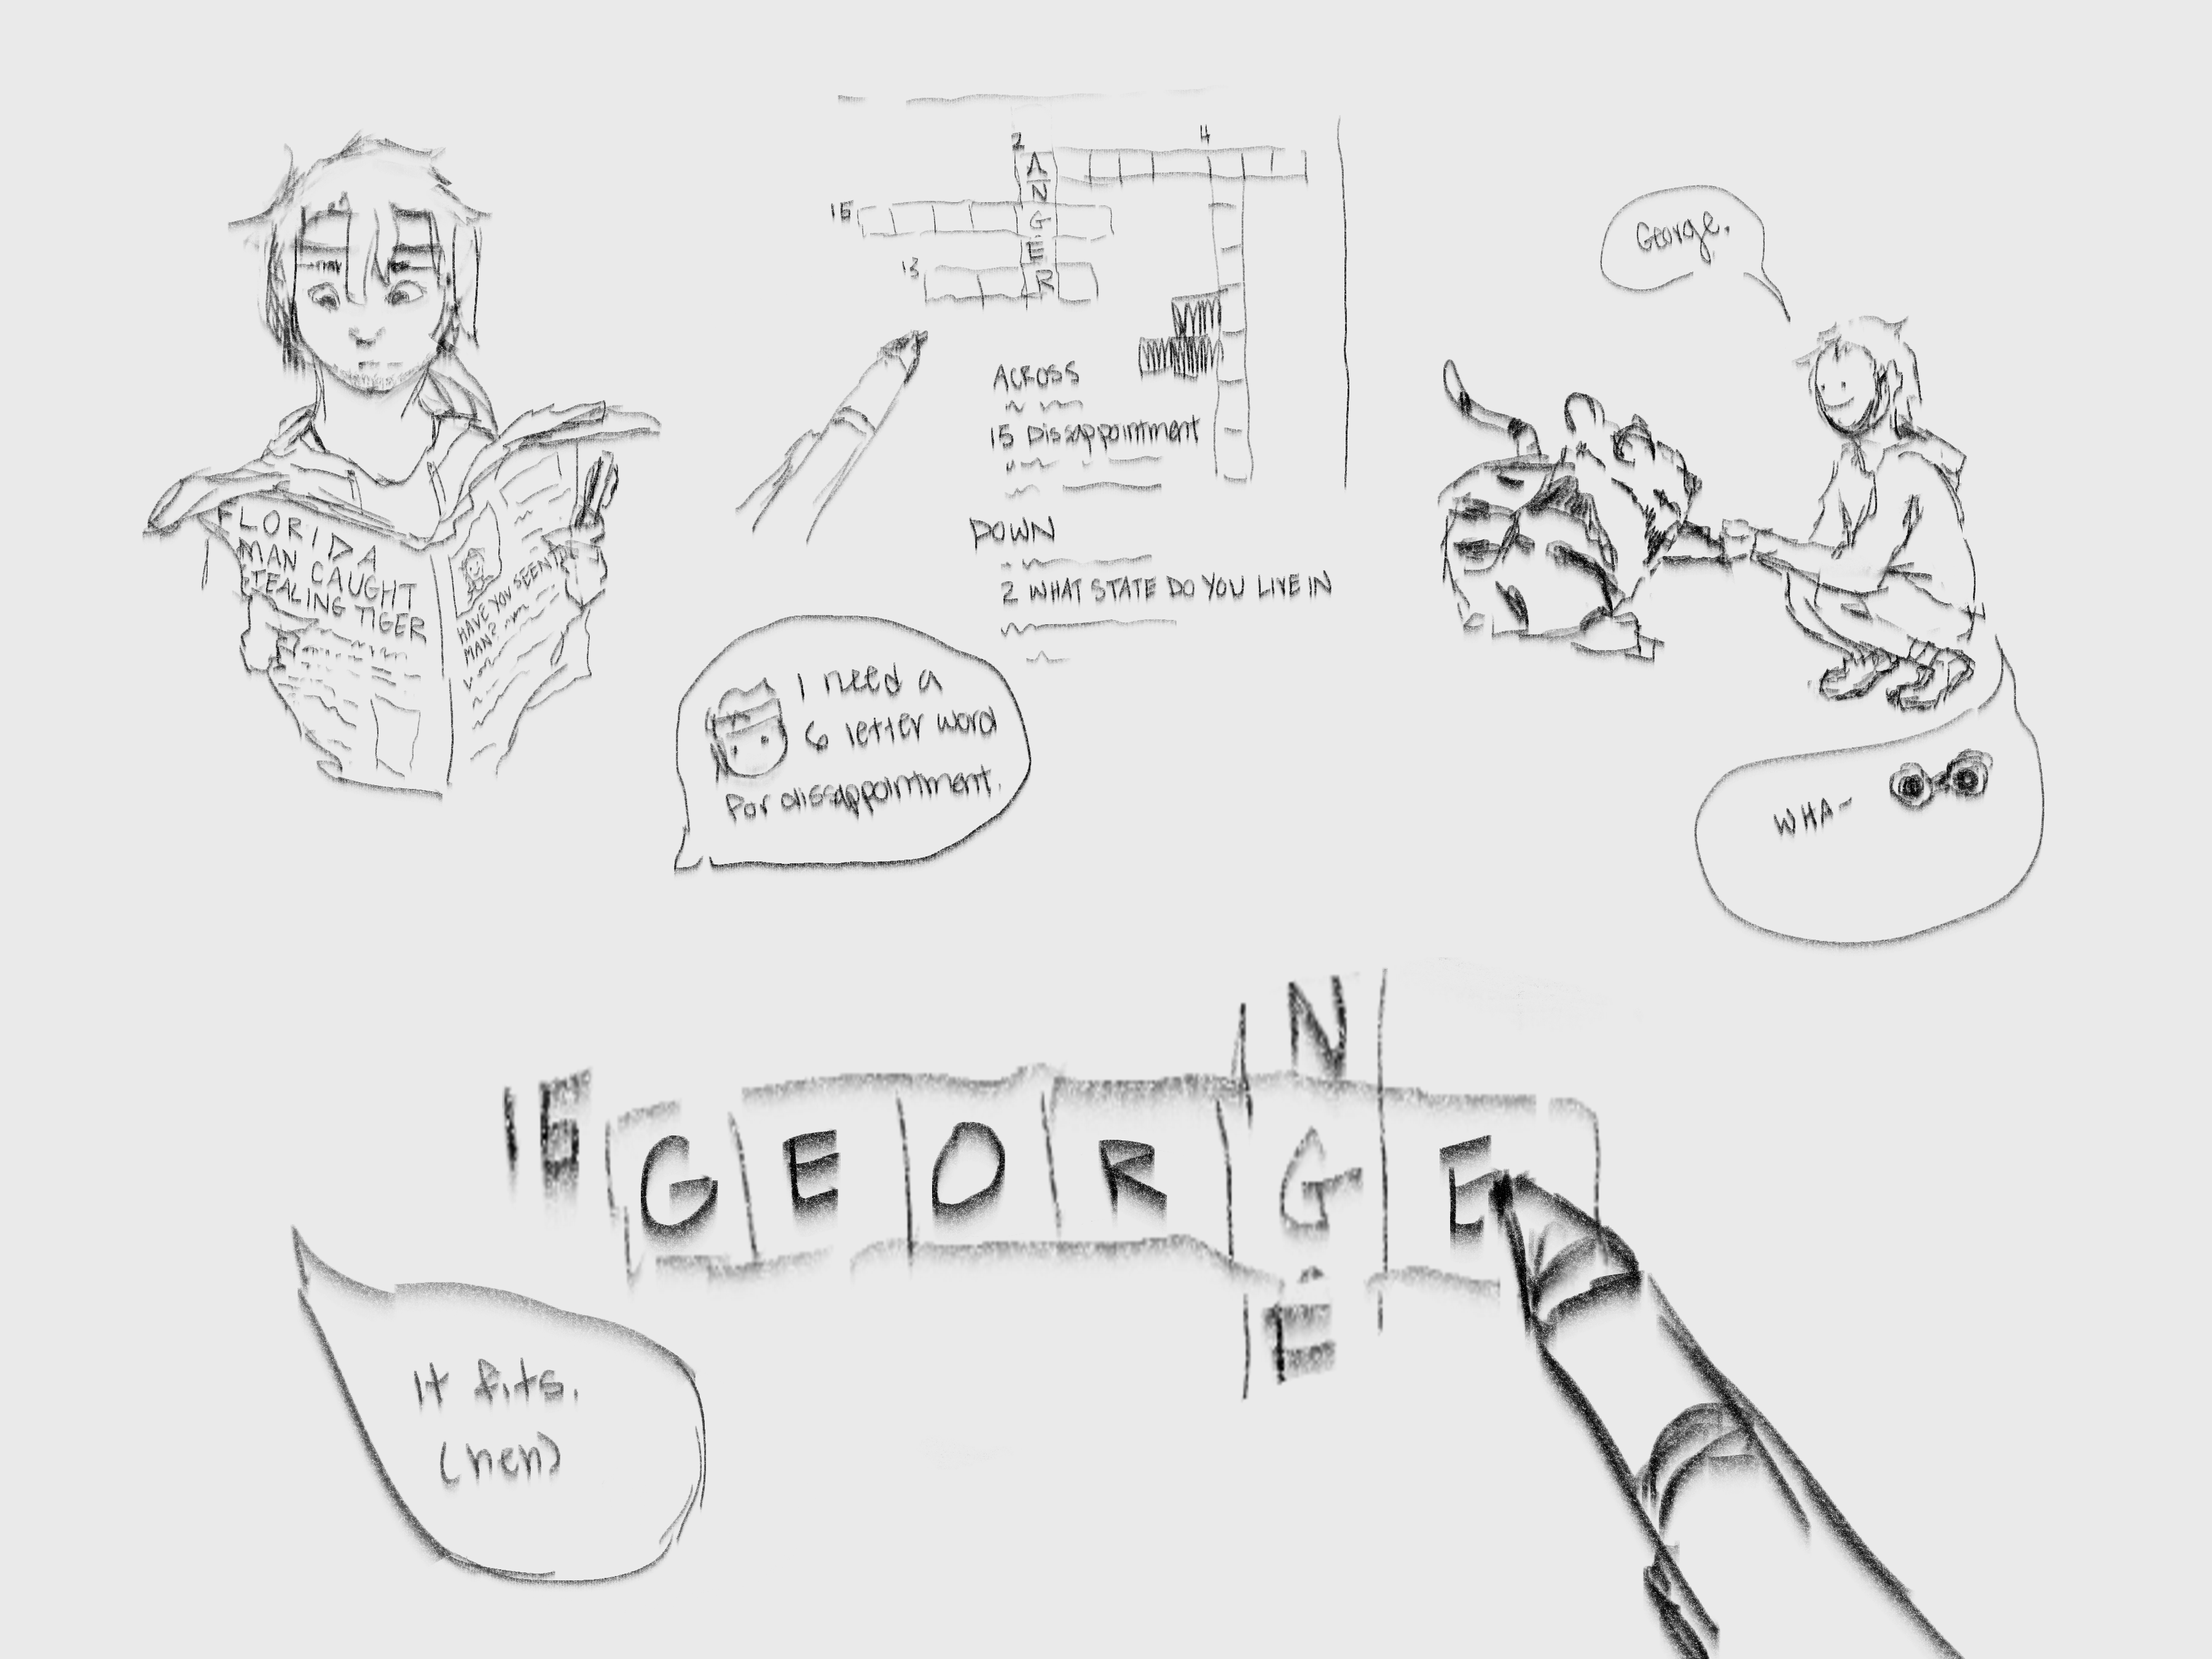 FLORIDA
MAN CAUGHT
STEALING TIGER
HAVE YOU SEEN THIS
MAN?
2
4
A
N
15
G
E
13
R
ACROSS
15 Dissappointment
DOWN
2 WHAT STATE DO YOU LIVE IN
I need a
6 letter word
for dissappointment.
George.
WHA-
N
15 G E O R G E
E
It fits.
(heh)